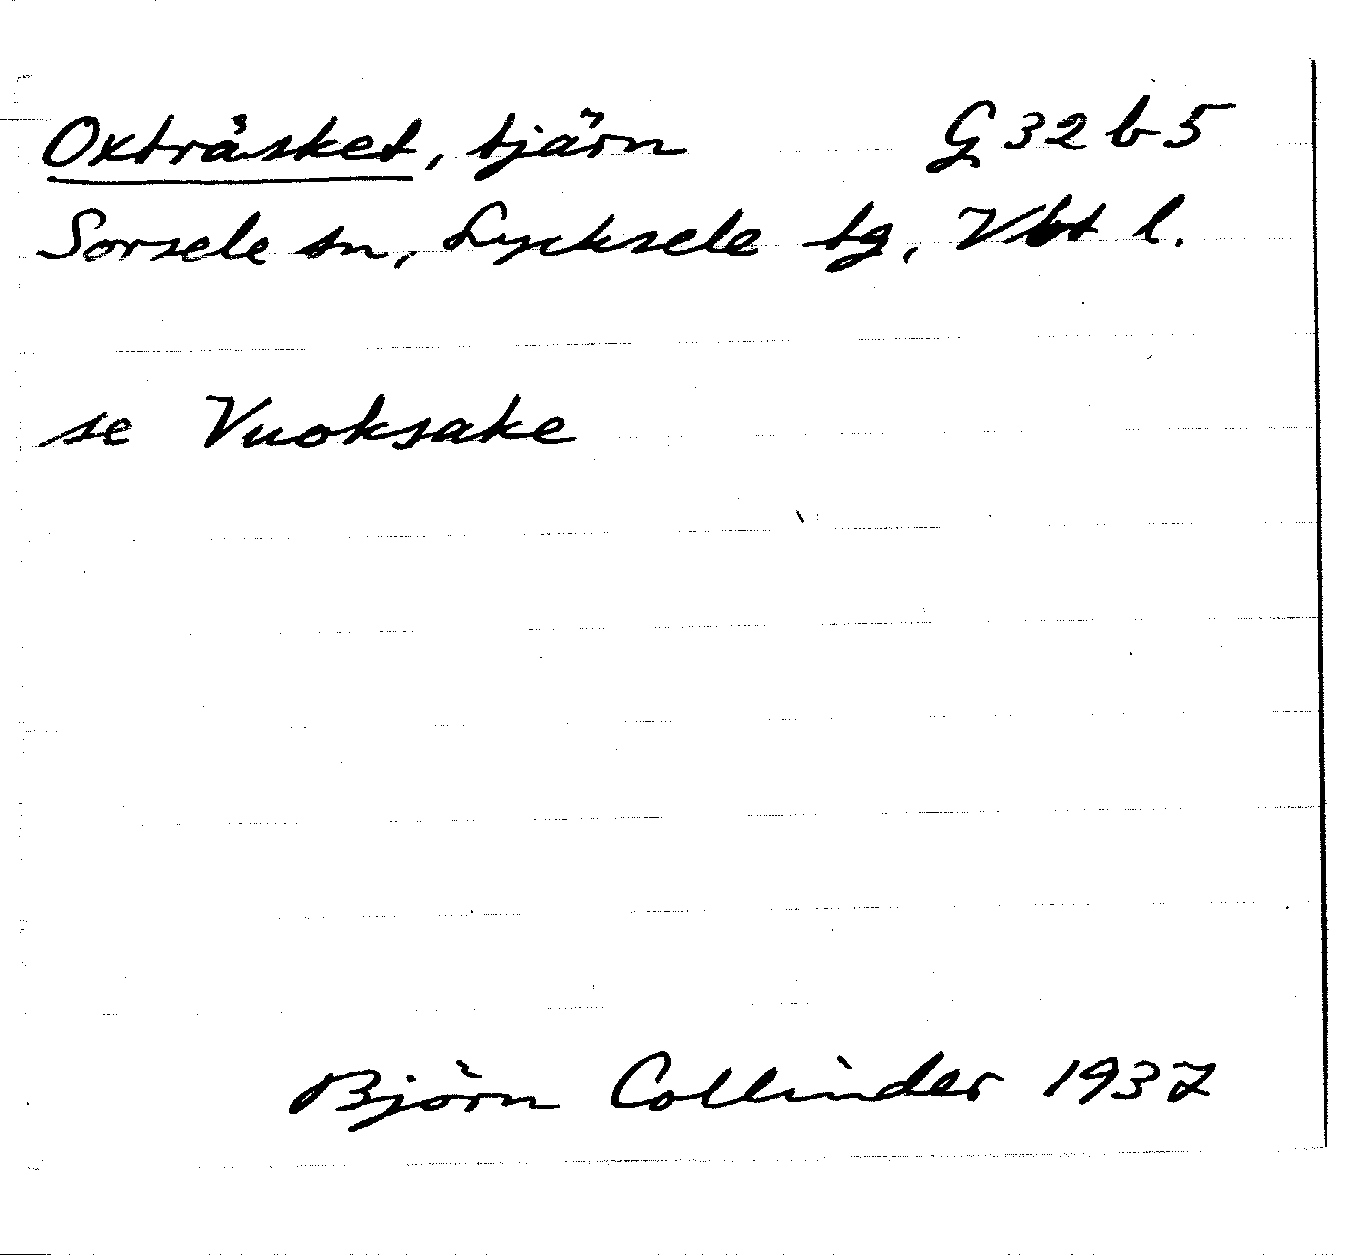 Oxträsket, tjärn G 32 b 5
Sorsele sn, Lycksele tg, Vbt l.
se Vuoksake
Björn Collinder 1937